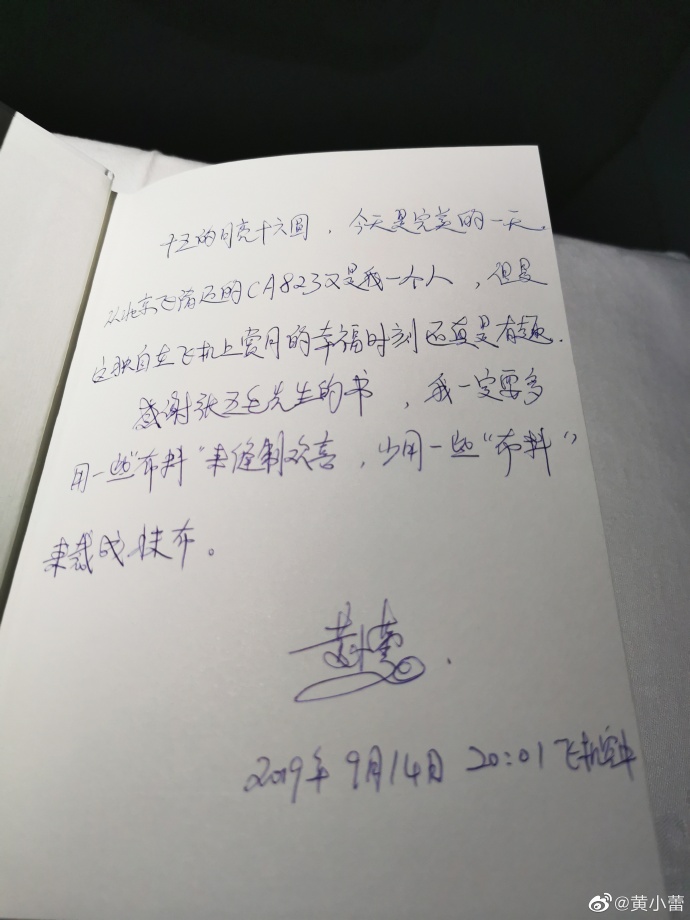 十五的月亮十六圆，今天是完美的一天.
从北京飞落迈的CA823又是我一个人，但是
这独自在飞机上赏月的幸福时刻还真是有趣.
感谢张五毛先生的书，我一定要多
用一些"布料"来缝制欢喜，少用一些"布料"
来裁成抹布。
黄小蕾.
2019年9月14日 20:01 飞机空中
@黄小蕾